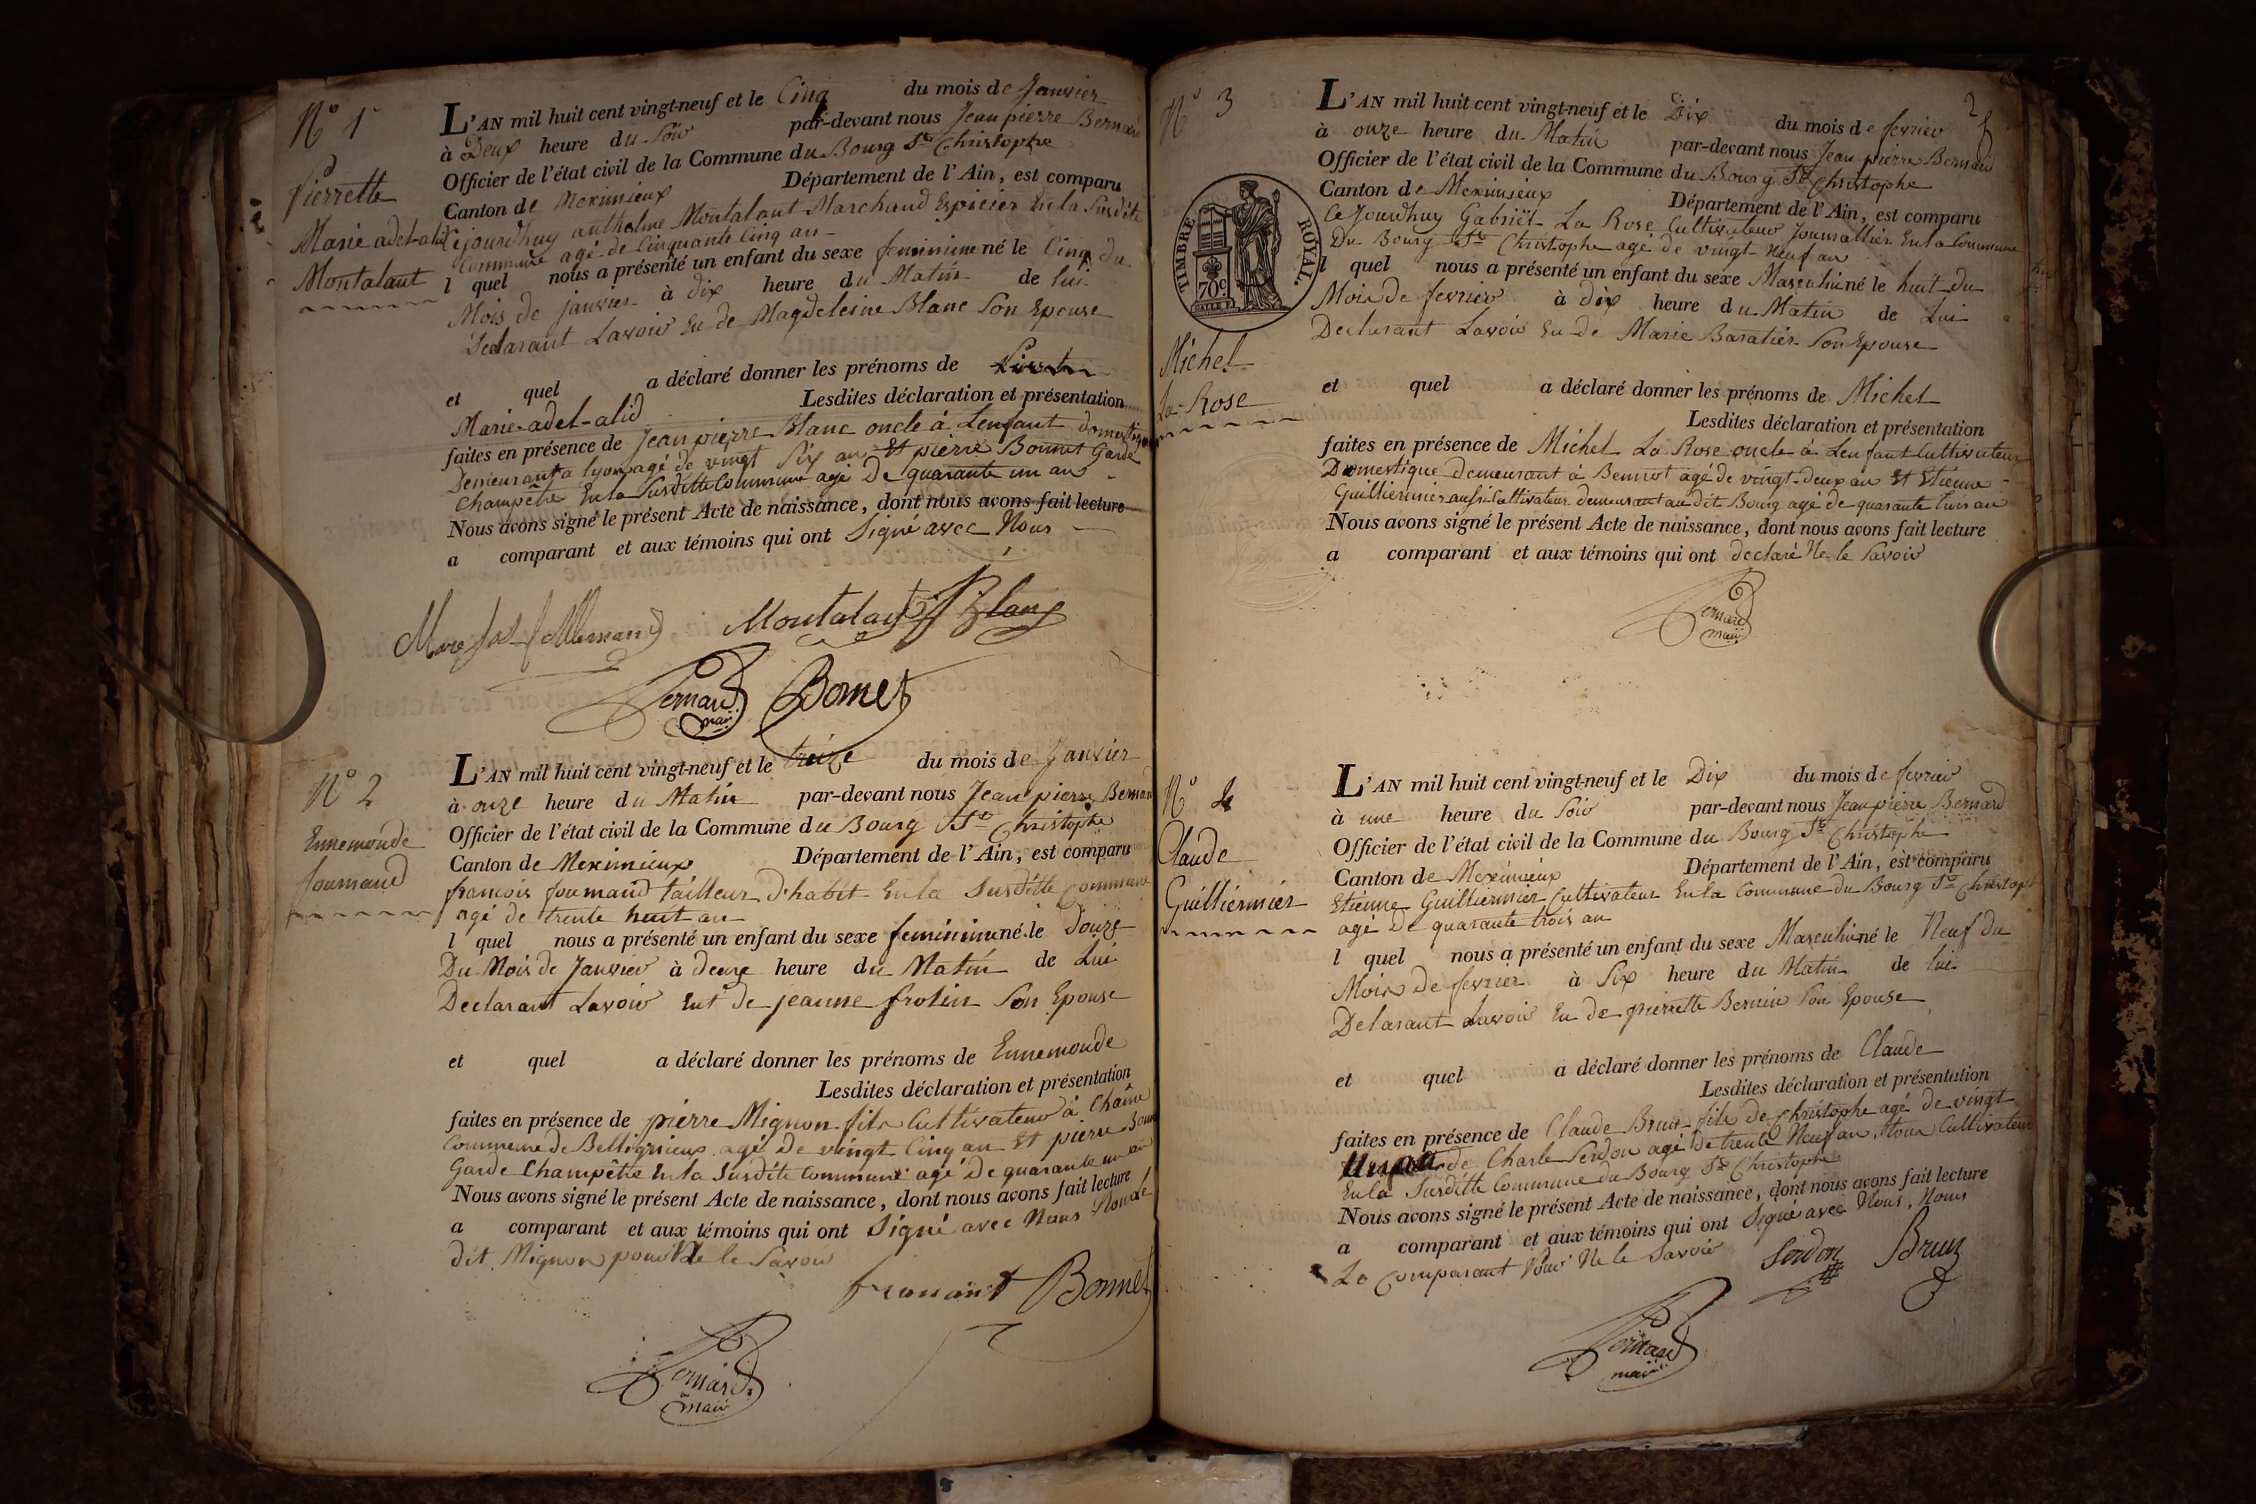 N° 1er
Pierrette
Marie adel-alid
Montalant
L'AN mil huit cent vingt-neuf et le Cinq du mois de Janvier
à Deux heure du Soir par-devant nous Jean pierre Bernard
Officier de l'état civil de la Commune du Bourg St Christophe
Canton de Meximieux Département de l'Ain, est comparu
Cejourdhuy anthelme Montalant Marchand Epicier En la Susdite
Commune agé de Cinquante Cinq an
l quel nous a présenté un enfant du sexe feminin né le Cinq du
Mois de janvier à dix heure du Matin de lui
Declarant Lavoir Eu de Magdeleine Blanc Son Epouse
et quel a déclaré donner les prénoms de
Marie-adel-alid Lesdites déclaration et présentation
faites en présence de Jean pierre Blanc oncle á Lenfant domestique
Demeurant a lyon agé de vingt Six an Et pierre Bonnet Garde
Champêtre En la Susditte Commune agé De quarante un an
Nous avons signé le présent Acte de naissance, dont nous avons fait lecture
a comparant et aux témoins qui ont Signé avec Nous
Montalant Blanc
Bernard Bonnet
maire
N° 2
Ennemonde
foumand
L'AN mil huit cent vingt-neuf et le treize du mois de Janvier
à onze heure du Matin par-devant nous Jean pierre Bernard
Officier de l'état civil de la Commune du Bourg St Christophe
Canton de Meximieux Département de l'Ain, est comparu
francois foumand tailleur D'habit En la Susditte Commune
agé de trente huit an
l quel nous a présenté un enfant du sexe feminin né le Douze
Du Mois de Janvier à deux heure du Matin de Lui
Declarant Lavoir Eut de jeanne frolin Son Epouse
et quel a déclaré donner les prénoms de Ennemonde
Lesdites déclaration et présentation
faites en présence de pierre Mignon fils Cultivateur á Chaîne
Commune de Belligneux agé De vingt Cinq an Et pierre Bonnet
Garde Champêtre En la Susdite Commune agé De quarante un an
Nous avons signé le présent Acte de naissance, dont nous avons fait lecture
a comparant et aux témoins qui ont Signé avec Nous Non le
dit Mignon pour Ne le Savoir
Bonnet
Bernard
maire
N° 3
2
TIMBRE ROYAL.
70c
Michel
La-Rose
L'AN mil huit cent vingt-neuf et le Dix du mois de fevrier
à onze heure du Matin par-devant nous Jean pierre Bernard
Officier de l'état civil de la Commune du Bourg St Christophe
Canton de Meximieux Département de l'Ain, est comparu
Cejourdhuy Gabriël La Rose Cultivateur Journallier En la Commune
Du Bourg St Christophe agé de vingt-Neuf an
l quel nous a présenté un enfant du sexe Masculin né le huit du
Mois de fevrier à dix heure du Matin de Lui
Declarant Lavoir Eu de Marie Baratier Son Epouse
et quel a déclaré donner les prénoms de Michel
Lesdites déclaration et présentation
faites en présence de Michel La Rose oncle á Lenfant Cultivateur
Domestique demeurant à Bennot agé de vingt-deux an Et Etienne
Guilliermier aussi Cultivateur demeurant au dit Bourg agé de quarante trois an
Nous avons signé le présent Acte de naissance, dont nous avons fait lecture
a comparant et aux témoins qui ont declaré Ne le Savoir
Bernard
maire
N° 4
Claude
Guilliermier
L'AN mil huit cent vingt-neuf et le Dix du mois de fevrier
à une heure du Soir par-devant nous Jean pierre Bernard
Officier de l'état civil de la Commune du Bourg St Christophe
Canton de Meximieux Département de l'Ain, est comparu
Etienne Guilliermier Cultivateur En la Commune du Bourg St Christophe
agé De quarante trois an
l quel nous a présenté un enfant du sexe Masculin né le Neuf du
Mois de fevrier à Six heure du Matin de lui
Delarant Lavoir Eu de pierrette Bernin Son Epouse
et quel a déclaré donner les prénoms de Claude
Lesdites déclaration et présentation
faites en présence de Claude Brun fils de Christophe agé de vingt
de Charle Serdon agé De trente Neuf an, tous Cultivateur
En la Susditte Commune du Bourg St Christophe
Nous avons signé le présent Acte de naissance, dont nous avons fait lecture
a comparant et aux témoins qui ont Signé avec Nous, Nous
Le Comparant Pour Ne le Savoir Serdon Brun
Bernard
maire